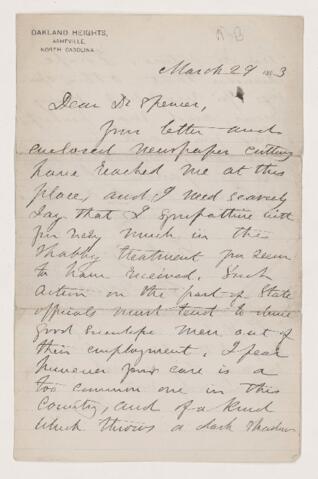 OAKLAND HEIGHTS,
ASHEVILLE,
NORTH CAROLINA.
March 29 1893
Dear Dr Spencer,
Your letter and
enclosed newspaper cutting
have reached me at this
place, and I need scarcely
say that I sympathize with
you very much in the
shabby treatment you seem
to have received. Such
action on the part of State
officials must tend to drive
good scientific men out of
their employment. I fear
however your case is a
too common one in this
Country, and of a kind
which throws a dark shadow